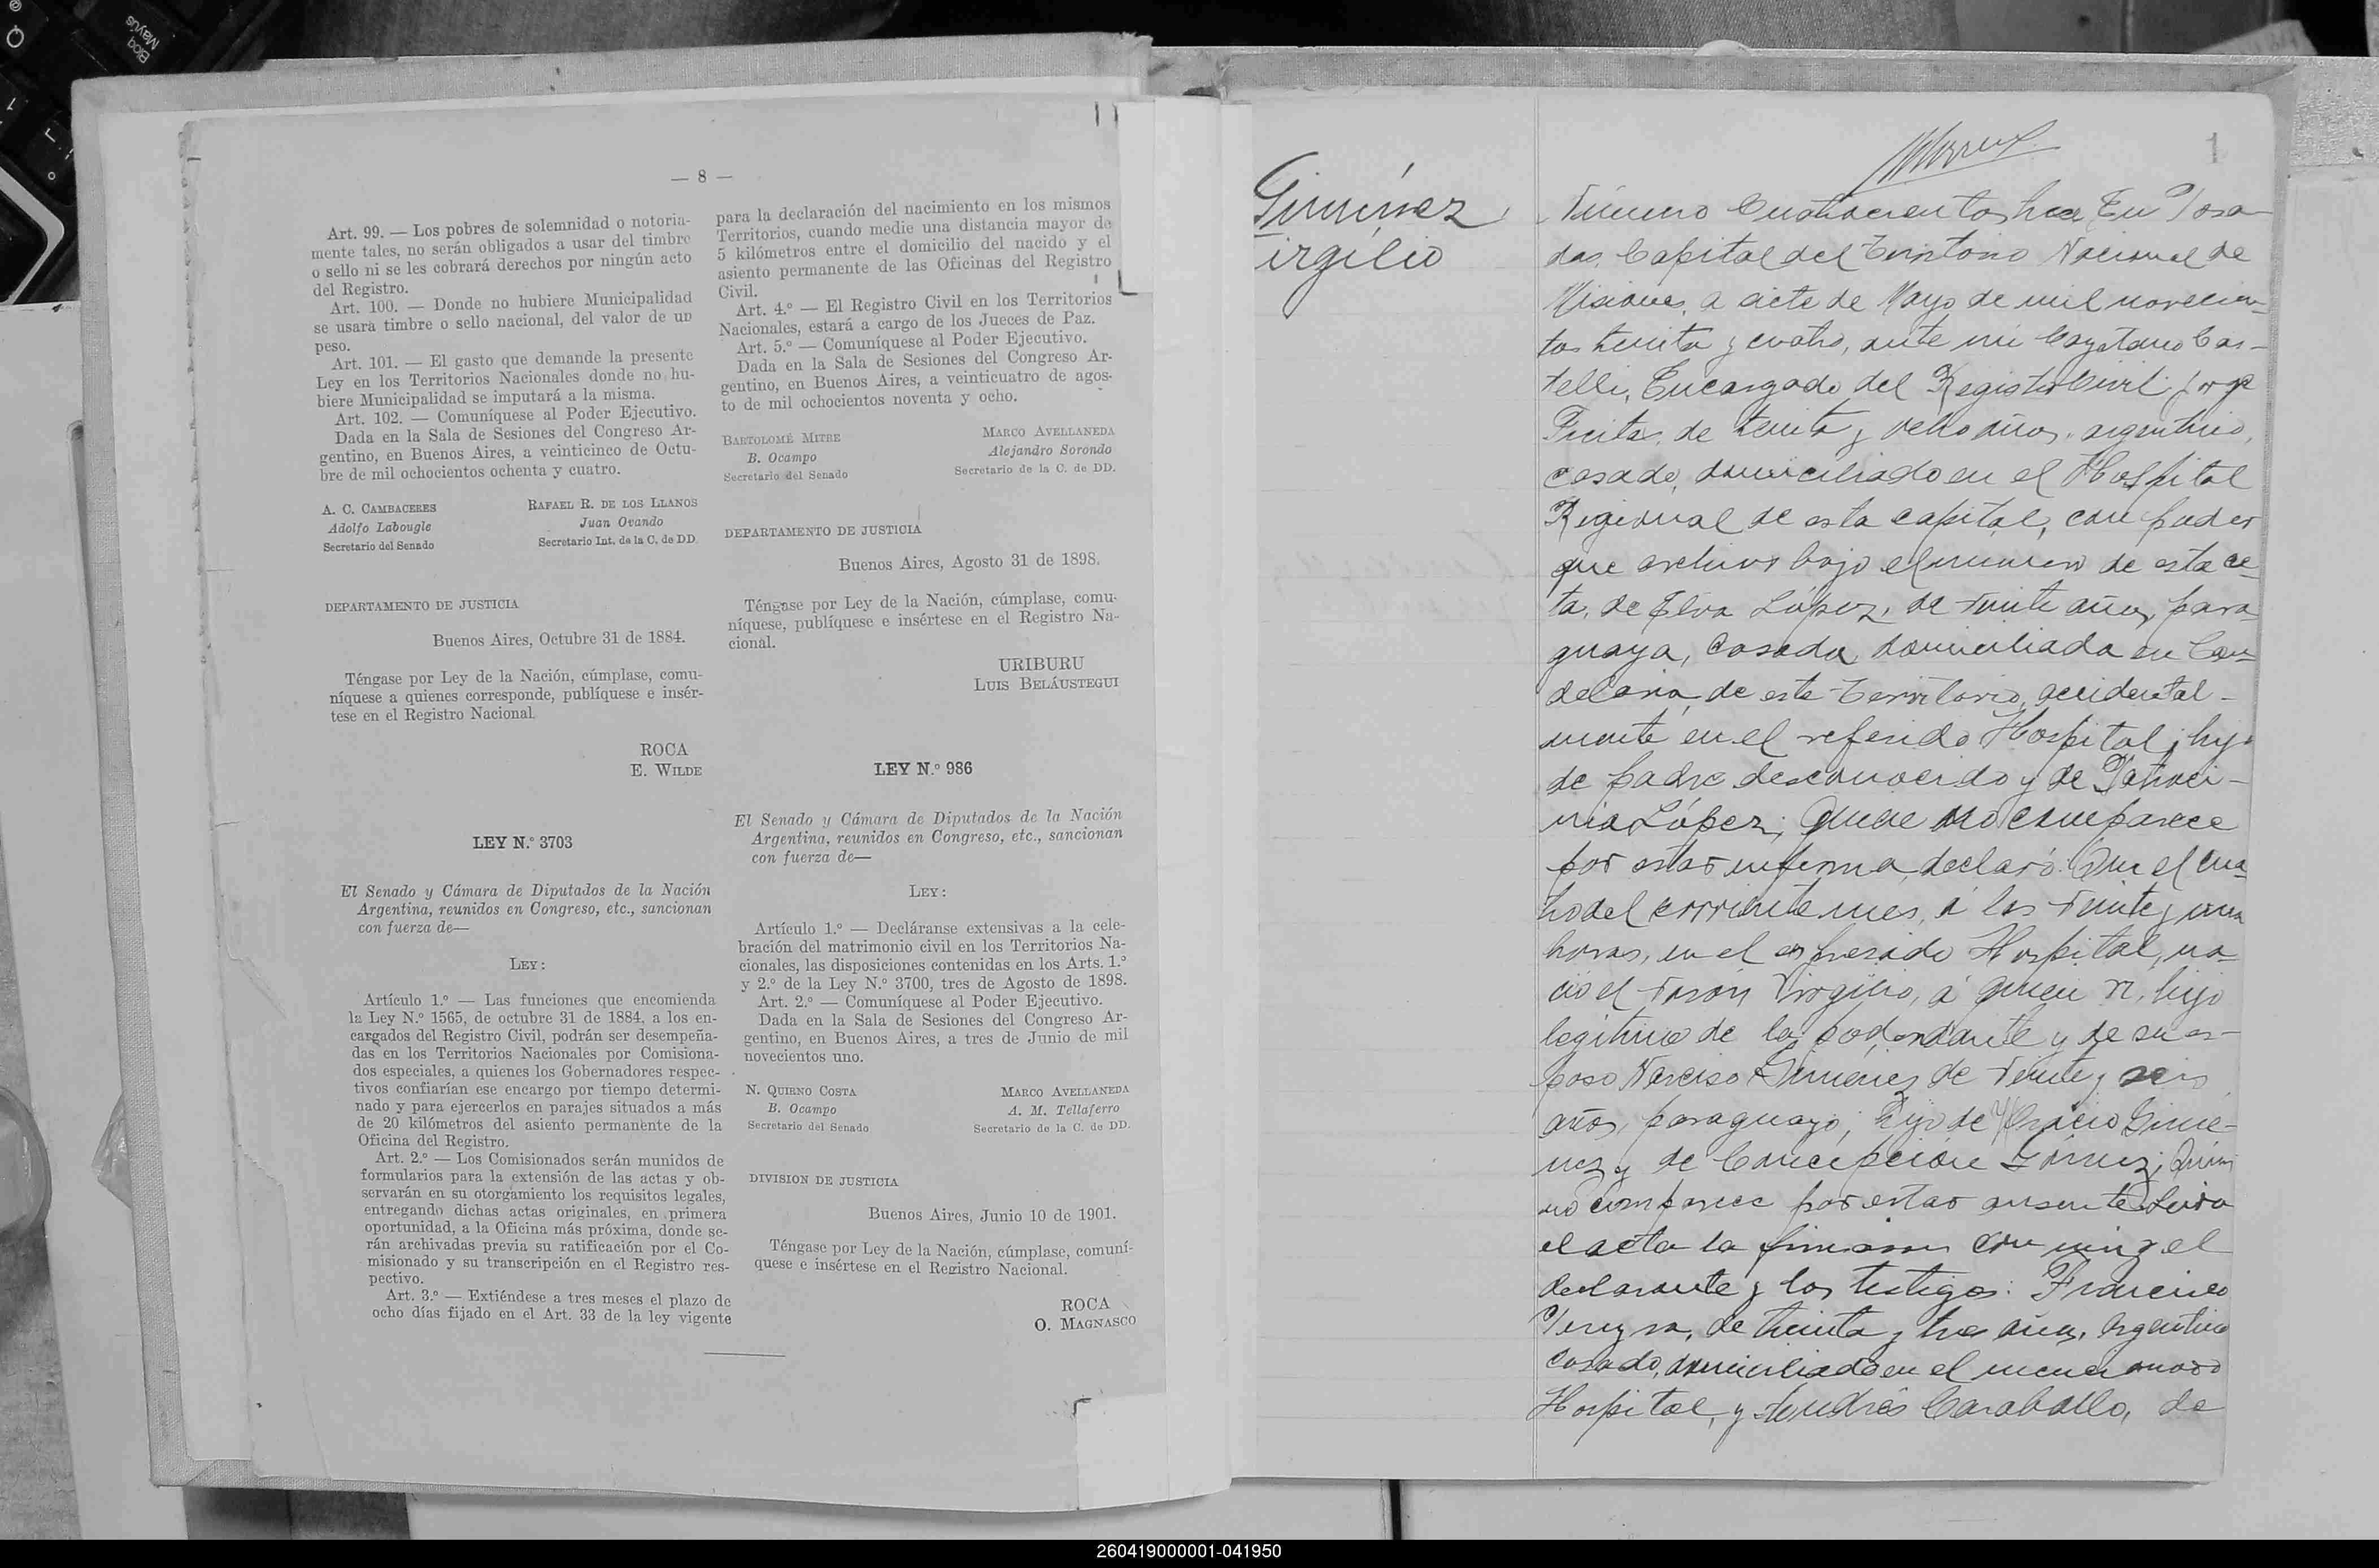 Bloq
Mayús
— 8 —
Art. 99. — Los pobres de solemnidad o notoria-
mente tales, no serán obligados a usar del timbre
o sello ni se les cobrará derechos por ningún acto
del Registro.
Art. 100. — Donde no hubiere Municipalidad
se usará timbre o sello nacional, del valor de un
peso.
Art. 101. — El gasto que demande la presente
Ley en los Territorios Nacionales donde no hu-
biere Municipalidad se imputará a la misma.
Art. 102. — Comuníquese al Poder Ejecutivo.
Dada en la Sala de Sesiones del Congreso Ar-
gentino, en Buenos Aires, a veinticinco de Octu-
bre de mil ochocientos ochenta y cuatro.
A. C. CAMBACERES RAFAEL R. DE LOS LLANOS
Adolfo Labougle Juan Ovando
Secretario del Senado Secretario Int. de la C. de DD.
DEPARTAMENTO DE JUSTICIA
Buenos Aires, Octubre 31 de 1884.
Téngase por Ley de la Nación, cúmplase, comu-
níquese a quienes corresponde, publíquese e insér-
tese en el Registro Nacional.
ROCA
E. WILDE
LEY N.º 3703
El Senado y Cámara de Diputados de la Nación
Argentina, reunidos en Congreso, etc., sancionan
con fuerza de—
LEY:
Artículo 1.º — Las funciones que encomienda
la Ley N.º 1565, de octubre 31 de 1884, a los en-
cargados del Registro Civil, podrán ser desempeña-
das en los Territorios Nacionales por Comisiona-
dos especiales, a quienes los Gobernadores respec-
tivos confiarían ese encargo por tiempo determi-
nado y para ejercerlos en parajes situados a más
de 20 kilómetros del asiento permanente de la
Oficina del Registro.
Art. 2.º — Los Comisionados serán munidos de
formularios para la extensión de las actas y ob-
servarán en su otorgamiento los requisitos legales,
entregando dichas actas originales, en primera
oportunidad, a la Oficina más próxima, donde se-
rán archivadas previa su ratificación por el Co-
misionado y su transcripción en el Registro res-
pectivo.
Art. 3.º — Extiéndese a tres meses el plazo de
ocho días fijado en el Art. 33 de la ley vigente
para la declaración del nacimiento en los mismos
Territorios, cuando medie una distancia mayor de
5 kilómetros entre el domicilio del nacido y el
asiento permanente de las Oficinas del Registro
Civil.
Art. 4.º — El Registro Civil en los Territorios
Nacionales, estará a cargo de los Jueces de Paz.
Art. 5.º — Comuníquese al Poder Ejecutivo.
Dada en la Sala de Sesiones del Congreso Ar-
gentino, en Buenos Aires, a veinticuatro de agos-
to de mil ochocientos noventa y ocho.
BARTOLOMÉ MITRE MARCO AVELLANEDA
B. Ocampo Alejandro Sorondo
Secretario del Senado Secretario de la C. de DD.
DEPARTAMENTO DE JUSTICIA
Buenos Aires, Agosto 31 de 1898.
Téngase por Ley de la Nación, cúmplase, comu-
níquese, publíquese e insértese en el Registro Na-
cional.
URIBURU
LUIS BELÁUSTEGUI
LEY N.º 986
El Senado y Cámara de Diputados de la Nación
Argentina, reunidos en Congreso, etc., sancionan
con fuerza de—
LEY:
Artículo 1.º — Decláranse extensivas a la cele-
bración del matrimonio civil en los Territorios Na-
cionales, las disposiciones contenidas en los Arts. 1.º
y 2.º de la Ley N.º 3700, tres de Agosto de 1898.
Art. 2.º — Comuníquese al Poder Ejecutivo.
Dada en la Sala de Sesiones del Congreso Ar-
gentino, en Buenos Aires, a tres de Junio de mil
novecientos uno.
N. QUIRNO COSTA MARCO AVELLANEDA
B. Ocampo A. M. Tellaferro
Secretario del Senado Secretario de la C. de DD.
DIVISION DE JUSTICIA
Buenos Aires, Junio 10 de 1901.
Téngase por Ley de la Nación, cúmplase, comuní-
quese e insértese en el Registro Nacional.
ROCA
O. MAGNASCO
1
Giménez
Virgilio
Número Cuatrocientos tres En Posa-
das, Capital del Territorio Nacional de
Misiones, a siete de Mayo de mil novecien-
tos treinta y cuatro, ante mí Cayetano Cas-
telli, Encargado del Registro Civil, Jorge
de treinta y ocho años, argentino,
casado, domiciliado en el Hospital
Regional de esta capital, con poder
que archivo bajo el número de esta ac-
ta, de Elva López, de veinte años, para-
guaya, casada, domiciliada en Can-
delaria, de este Territorio, accidental-
mente en el referido Hospital, hija
de padre desconocido y de Patroci-
nia López; quien no comparece
por estar enferma, declaró: Que el cua-
tro del corriente mes, á las veinte y una
horas, en el expresado Hospital, na-
ció el varón Virgilio, á quien vi, hijo
legítimo de la poderdante y de su es-
poso Narciso Gimenez, de veinte y seis
años, paraguayo, hijo de Gime-
nez y de Concepción Gómez; quien
no comparece por estar ausente. Leida
el acta la firmaron conmigo el
declarante y los testigos: Francisco
de treinta y tres años, argentino
casado, domiciliado en el mencionado
Hospital, y Andrés Caraballo, de
260419000001-041950